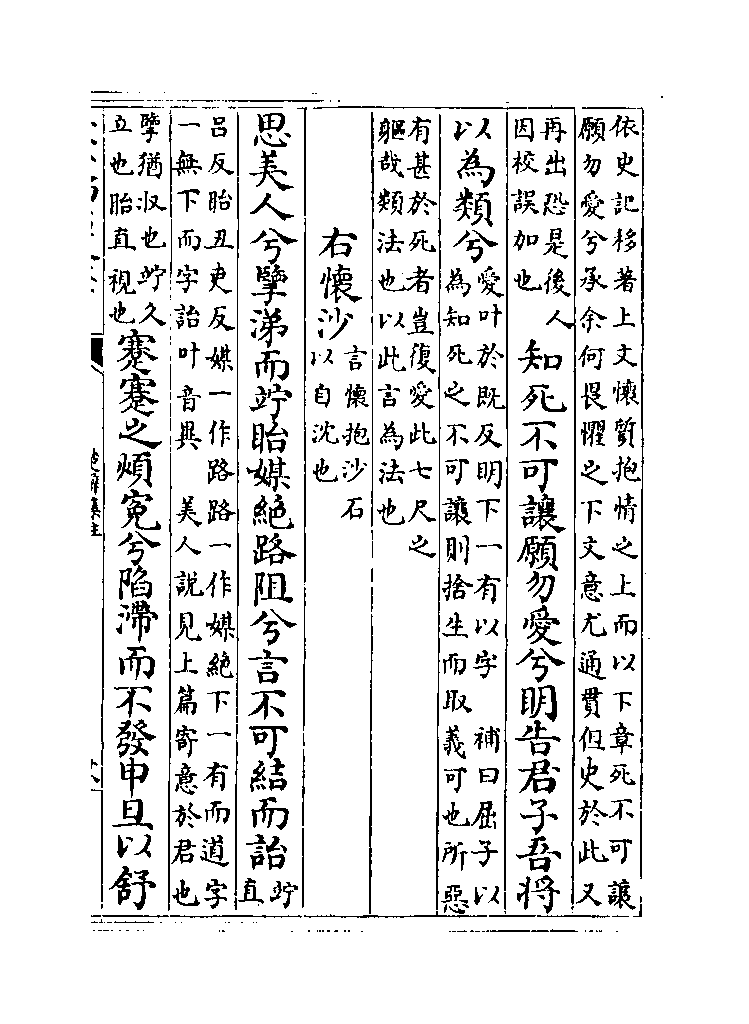 依史記移著上文懷質抱情之上而以下章死不可讓
願勿愛兮承余何畏懼之下文意尤通貫但史於此又
再出恐是後人
因校誤加也
知死不可讓願勿愛兮明告君子吾將
以為類兮
愛叶於既反明下一有以字 補曰屈子以
為知死之不可讓則捨生而取義可也所惡
有甚於死者豈復愛此七尺之
軀哉類法也以此言為法也
右懷沙
言懷抱沙石
以自沈也
思美人兮擥涕而竚眙媒絶路阻兮言不可結而詒
竚直
吕反眙丑吏反媒一作路路一作媒絶下一有而道字
一無下而字詒叶音異 美人說見上篇寄意於君也
擥猶収也竚久
立也眙直視也
蹇蹇之煩寃兮陷滯而不發申旦以舒
楚辭集注